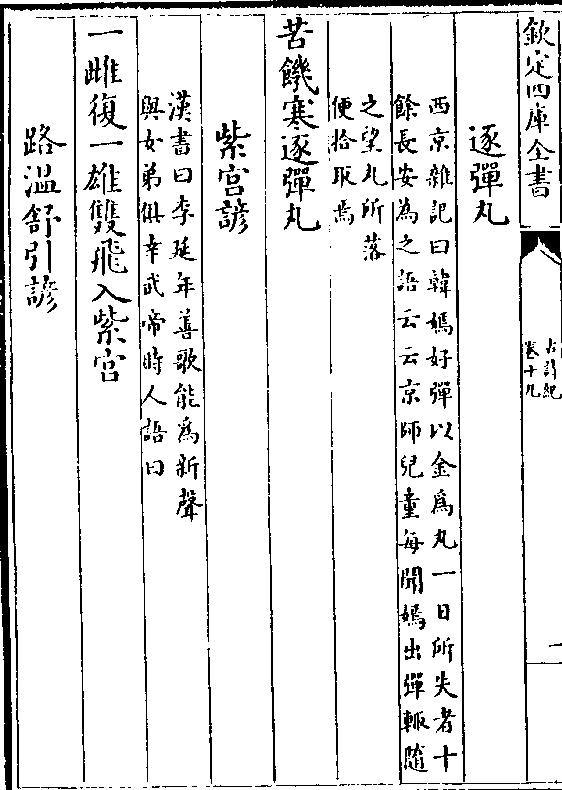 欽定四庫全書
古詩紀
卷十九
二
逐彈丸
西京雜記曰韓嫣好彈以金爲丸一日所失者十
餘長安為之語云云京師兒童每聞嫣出彈輒隨
之望丸所落
便拾取焉
苦饑寒逐彈丸
紫宮諺
漢書曰李延年善歌能爲新聲
與女弟俱幸武帝時人語曰
一雌復一雄雙飛入紫宮
路溫舒引諺